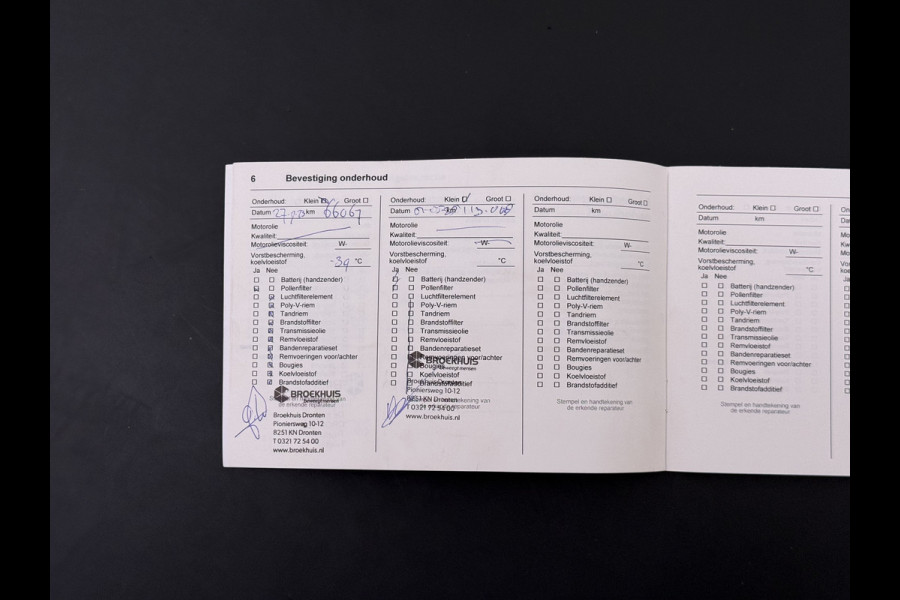 6 Bevestiging onderhoud
Onderhoud: Klein Groot
Datum km 66067
Motorolie
Kwaliteit:
Motorolieviscositeit: W-
Vorstbescherming,
koelvloeistof -39 °C
Ja Nee
Batterij (handzender)
Pollenfilter
Luchtfilterelement
Poly-V-riem
Tandriem
Brandstoffilter
Transmissieolie
Remvloeistof
Bandenreparatieset
Remvoeringen voor/achter
Bougies
Koelvloeistof
Brandstofadditief
BROEKHUIS
Broekhuis Dronten
Pioniersweg 10-12
8251 KN Dronten
T 0321 72 54 00
www.broekhuis.nl
Onderhoud: Klein Groot
Datum km
Motorolie
Kwaliteit:
Motorolieviscositeit: W-
Vorstbescherming,
koelvloeistof °C
Ja Nee
Batterij (handzender)
Pollenfilter
Luchtfilterelement
Poly-V-riem
Tandriem
Brandstoffilter
Transmissieolie
Remvloeistof
Bandenreparatieset
Remvoeringen voor/achter
Bougies
Koelvloeistof
Brandstofadditief
BROEKHUIS
Broekhuis Dronten
Pioniersweg 10-12
8251 KN Dronten
T 0321 72 54 00
www.broekhuis.nl
Onderhoud: Klein Groot
Datum km
Motorolie
Kwaliteit:
Motorolieviscositeit: W-
Vorstbescherming,
koelvloeistof °C
Ja Nee
Batterij (handzender)
Pollenfilter
Luchtfilterelement
Poly-V-riem
Tandriem
Brandstoffilter
Transmissieolie
Remvloeistof
Bandenreparatieset
Remvoeringen voor/achter
Bougies
Koelvloeistof
Brandstofadditief
Stempel en handtekening van
de erkende reparateur
Onderhoud: Klein Groot
Datum km
Motorolie
Kwaliteit:
Motorolieviscositeit: W-
Vorstbescherming,
koelvloeistof °C
Ja Nee
Batterij (handzender)
Pollenfilter
Luchtfilterelement
Poly-V-riem
Tandriem
Brandstoffilter
Transmissieolie
Remvloeistof
Bandenreparatieset
Remvoeringen voor/achter
Bougies
Koelvloeistof
Brandstofadditief
Stempel en handtekening van
de erkende reparateur